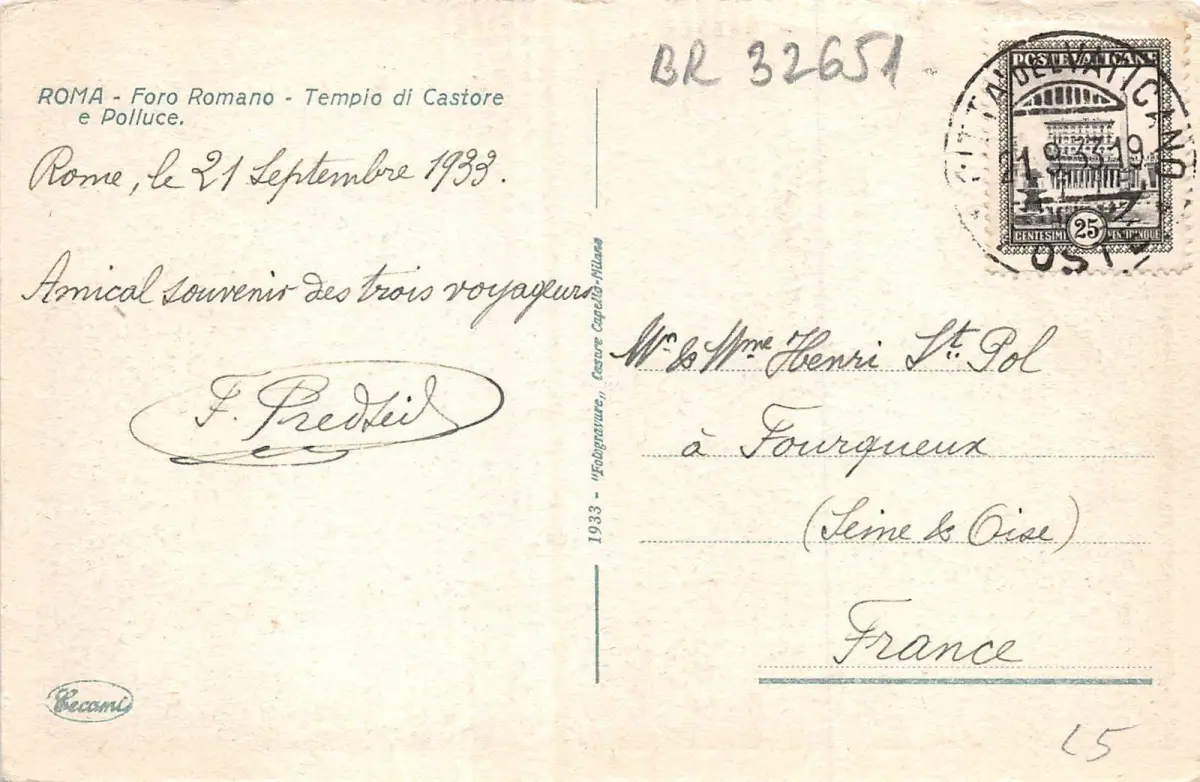 BR 32651
ROMA - Foro Romano - Tempio di Castore
e Polluce.
Rome, le 21 Septembre 1933.
Amical souvenir des trois voyageurs
F.
1933 - "Fotogravure„ Cesare Capello-Milano
Cecami
POSTE VATICANE
CENTESIMI 25 VENTICINQUE
CITTA DEL VATICANO
21.9.33.19
POSTE
Mr & Mme Henri St. Pol
à Fourqueux
(Seine & Oise)
France
L5